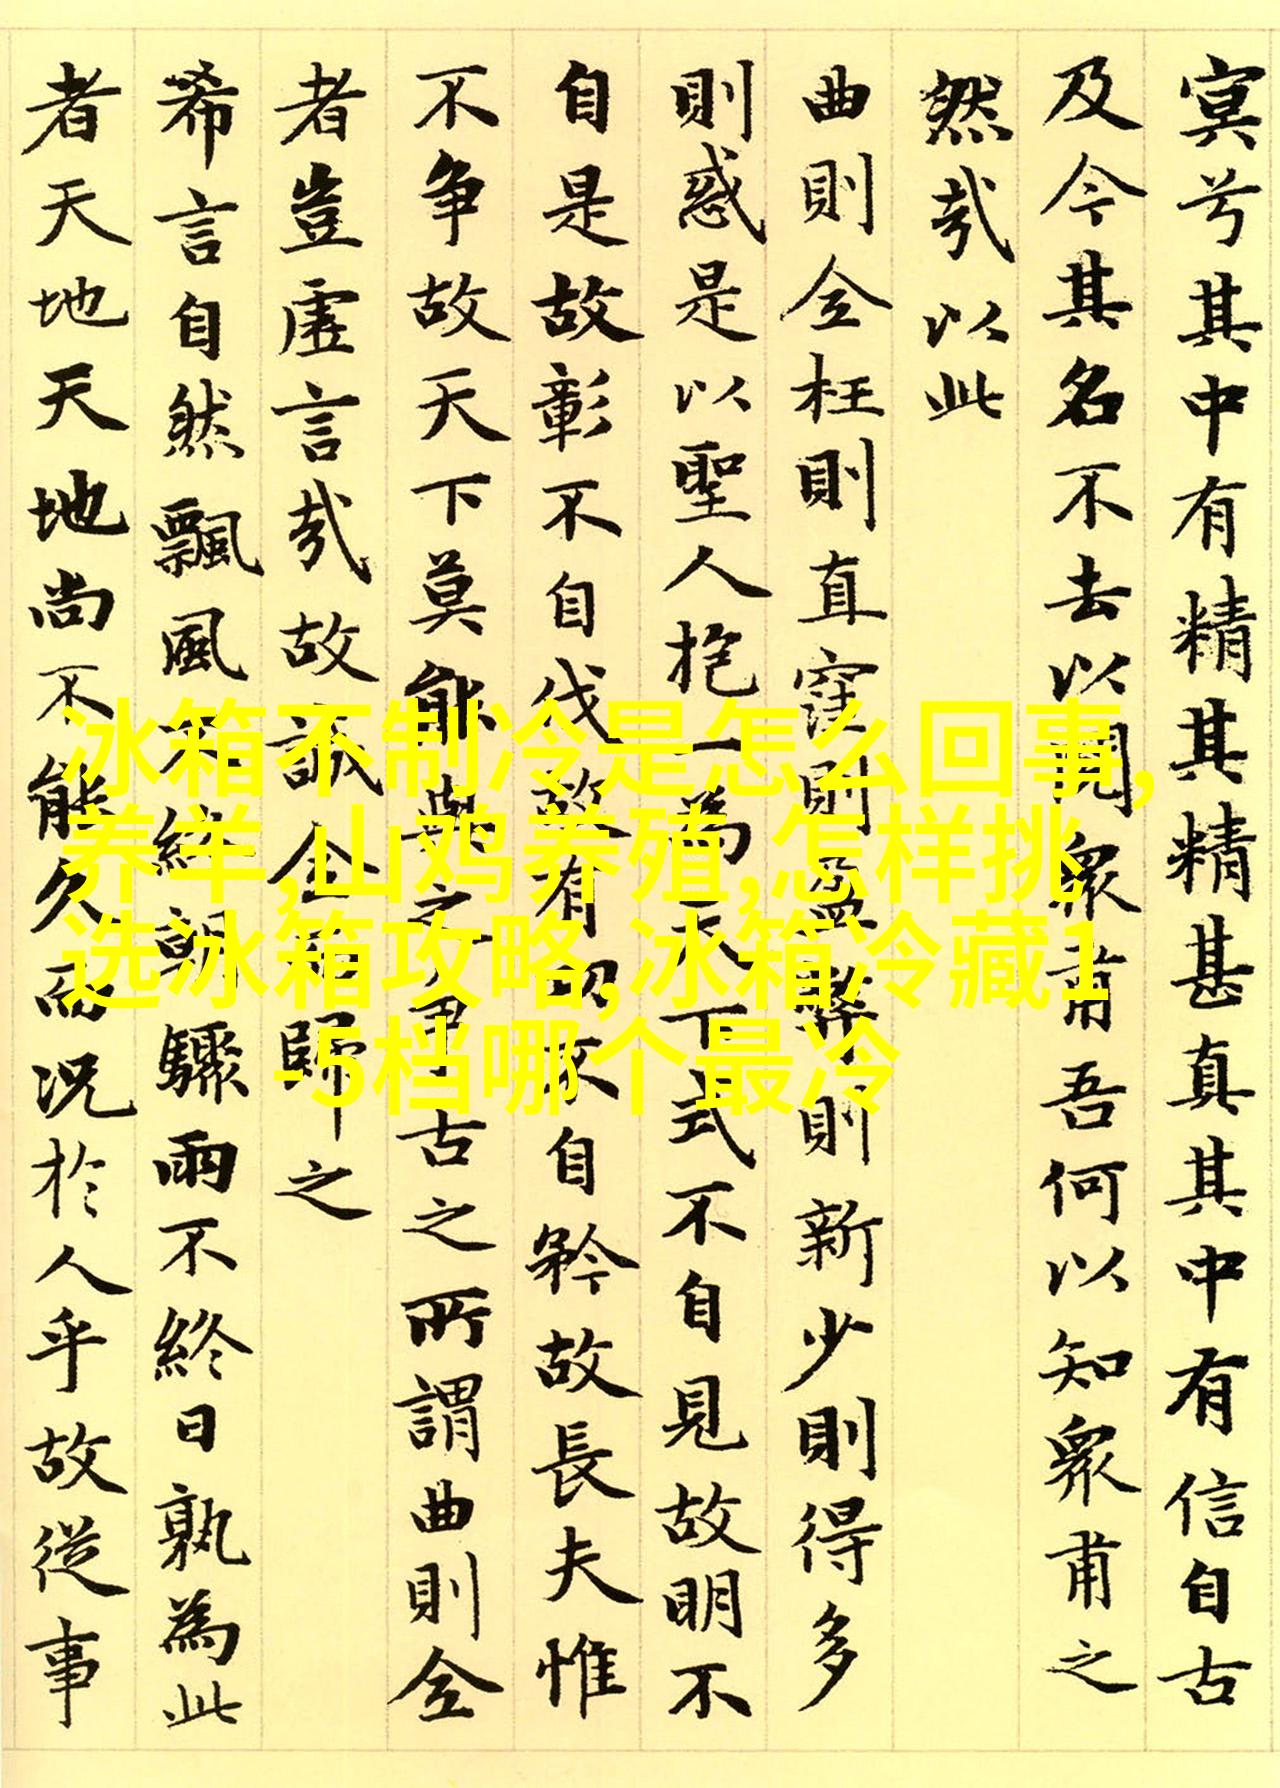 窅兮其中有精其精甚真其中有信自古
及今其名不去以閱眾甫吾何以知眾甫之
然哉以此
曲則全枉則直窪則盈弊則新少則得多
則惑是以聖人抱一為天下式不自見故明不
自是故彰不自伐故有功不自矜故長夫惟
不争故天下莫能與之争古之所謂曲則全
者豈虛言哉故誠全而歸之
希言自然飄風不終朝驟雨不終日孰為此
者天地天地尚不能久而況於人乎故從事
冰箱不制冷是怎么回事,
养羊,山鸡养殖,怎样挑
选冰箱攻略,冰箱冷藏1
-5档哪个最冷